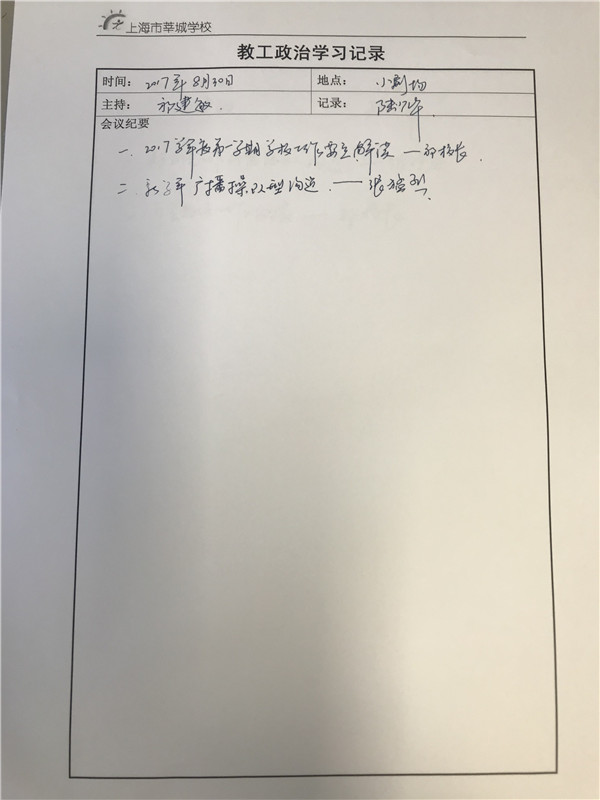 上海市莘城学校
教工政治学习记录
时间: 2017年8月30日 地点: 小剧场
主持: 建敏. 记录: 陆
会议纪要
一. 2017学年第一学期学校工作 解读 — 校长.
二. 新学年广播操队型沟通. —— 张